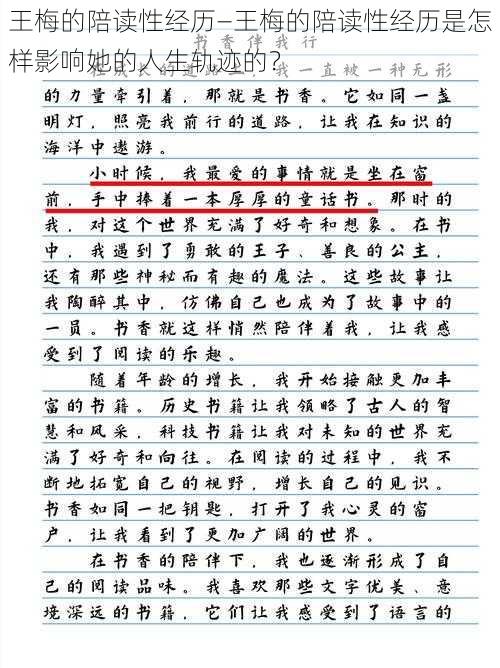 王梅的陪读性经历—王梅的陪读性经历是怎
样影响她的人生轨迹的？
书香伴我行
在成长的道路上，我一直被一种无形
的力量牵引着，那就是书香。它如同一盏
明灯，照亮我前行的道路，让我在知识的
海洋中遨游。
小时候，我最爱的事情就是坐在窗
前，手中捧着一本厚厚的童话书。那时的
我，对这个世界充满了好奇和想象。在书
中，我遇到了勇敢的王子、善良的公主，
还有那些神秘而有趣的魔法。这些故事让
我陶醉其中，仿佛自己也成为了故事中的
一员。书香就这样悄然陪伴着我，让我感
受到了阅读的乐趣。
随着年龄的增长，我开始接触更加丰
富的书籍。历史书籍让我领略了古人的智
慧和风采，科技书籍让我对未知的世界充
满了好奇和向往。在阅读的过程中，我不
断地拓宽自己的视野，增长自己的见识。
书香如同一把钥匙，打开了我心灵的窗
户，让我看到了更加广阔的世界。
在书香的陪伴下，我也逐渐形成了自
己的阅读品味。我喜欢那些文字优美、意
境深远的书籍，它们让我感受到了语言的